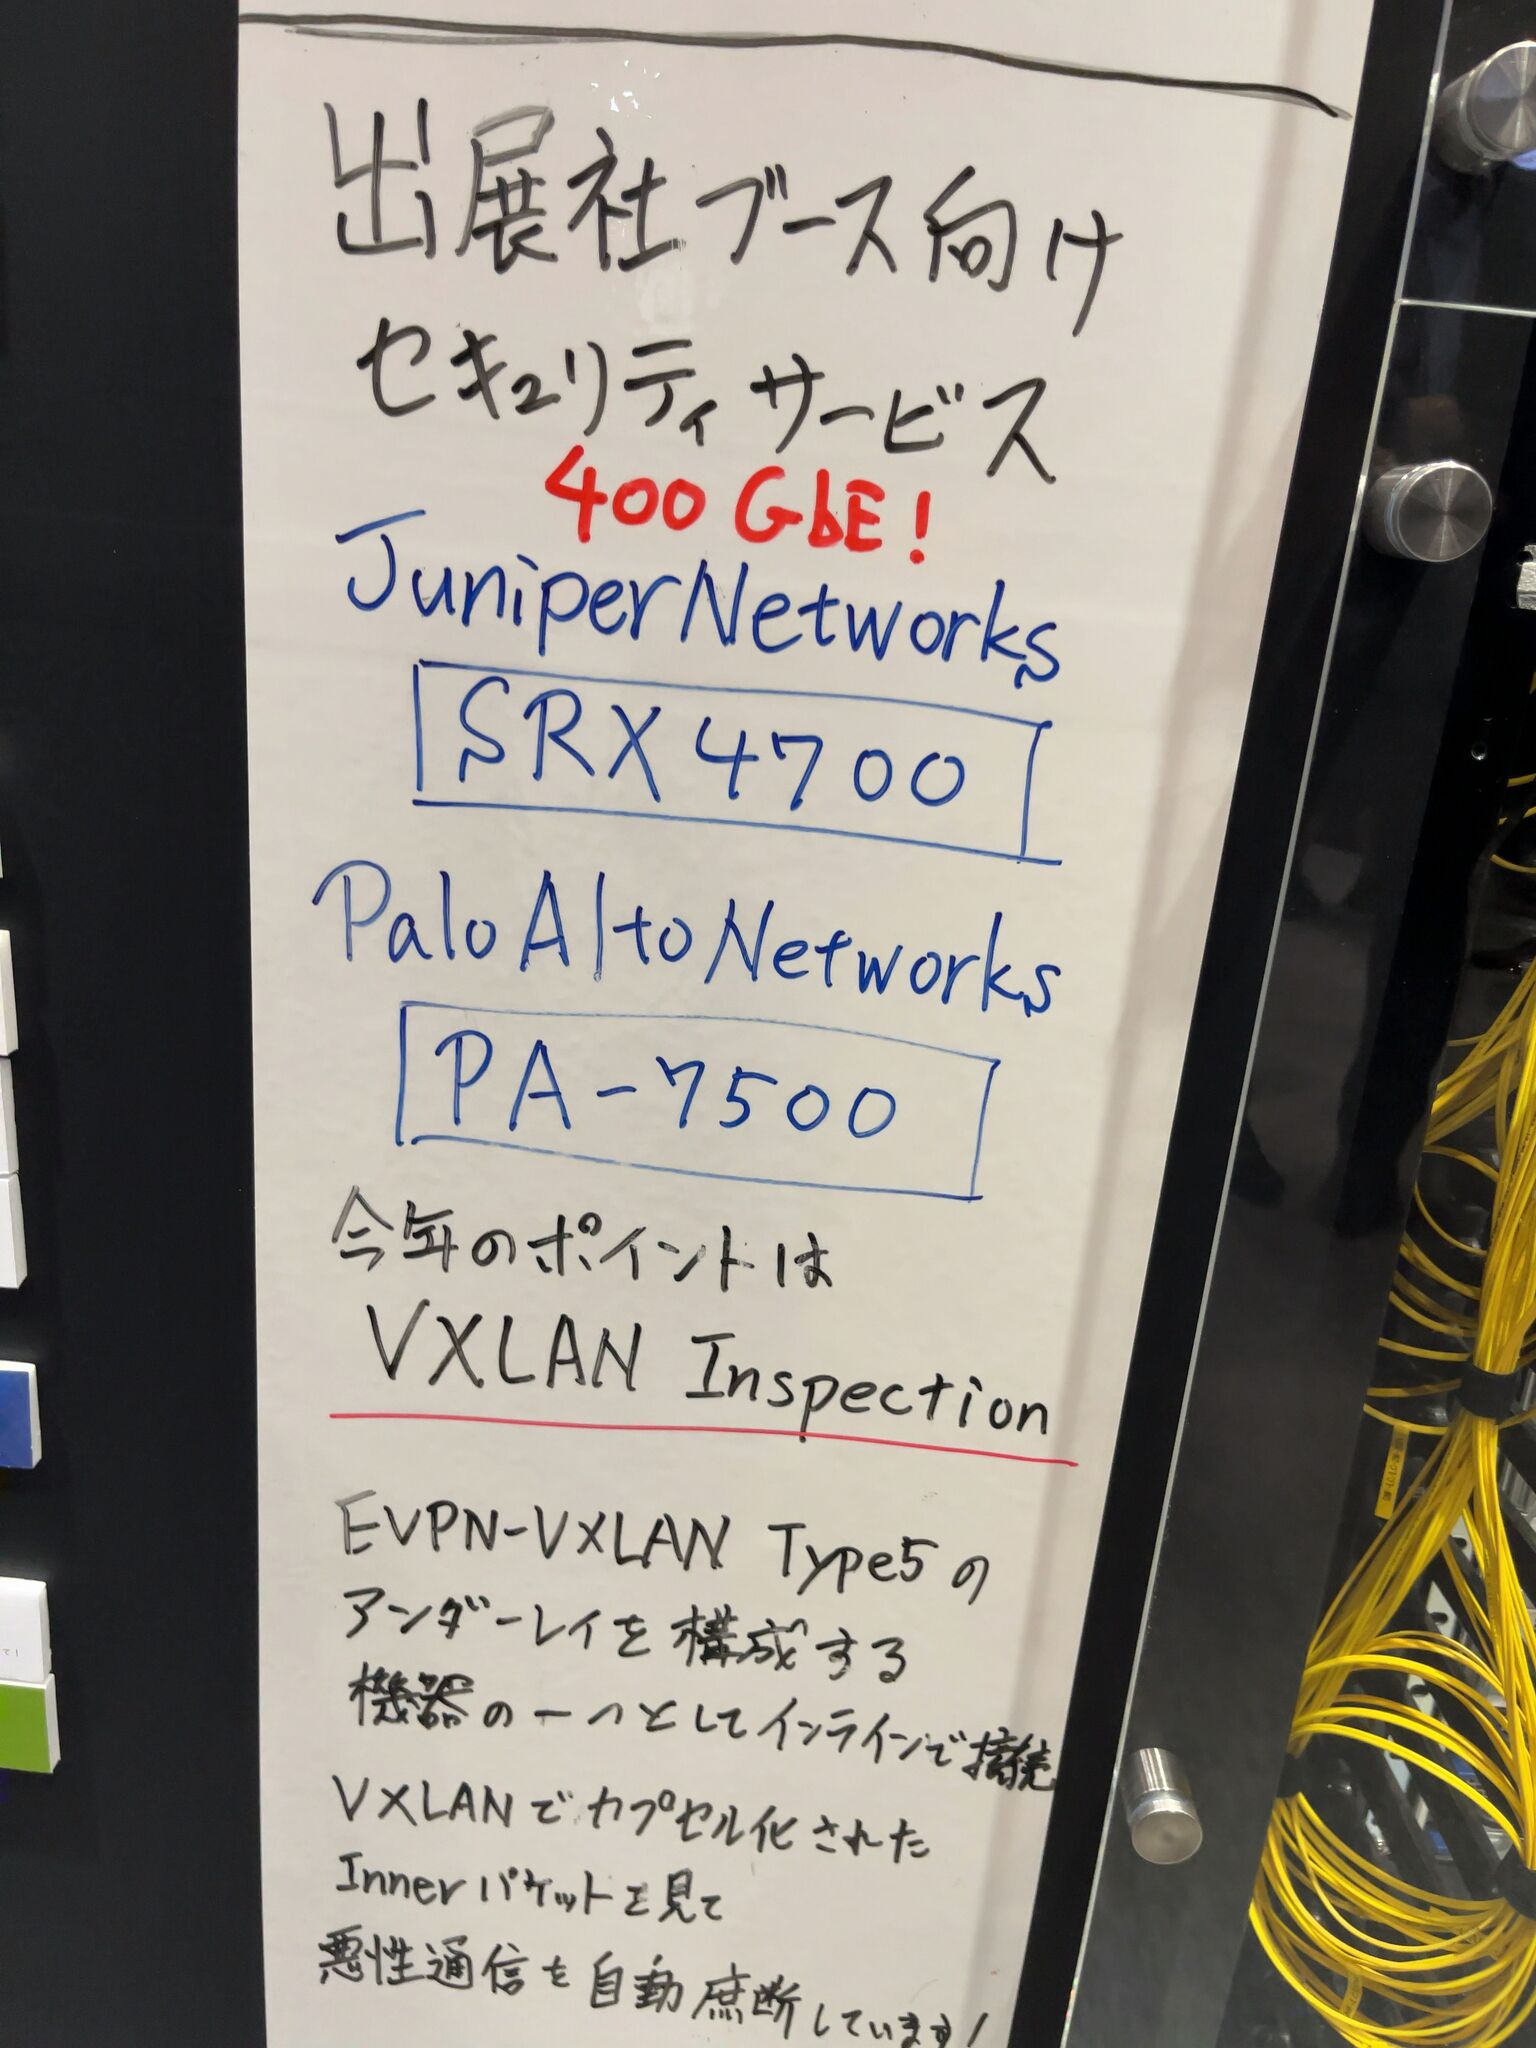 出展社ブース向け
セキュリティサービス
400 GbE!
Juniper Networks
SRX4700
Palo Alto Networks
PA-7500
今年のポイントは
VXLAN Inspection
EVPN-VXLAN Type5の
アンダーレイを構成する
機器の一つとしてインラインで接続
VXLANでカプセル化された
Innerパケットを見て
悪性通信を自動遮断しています!